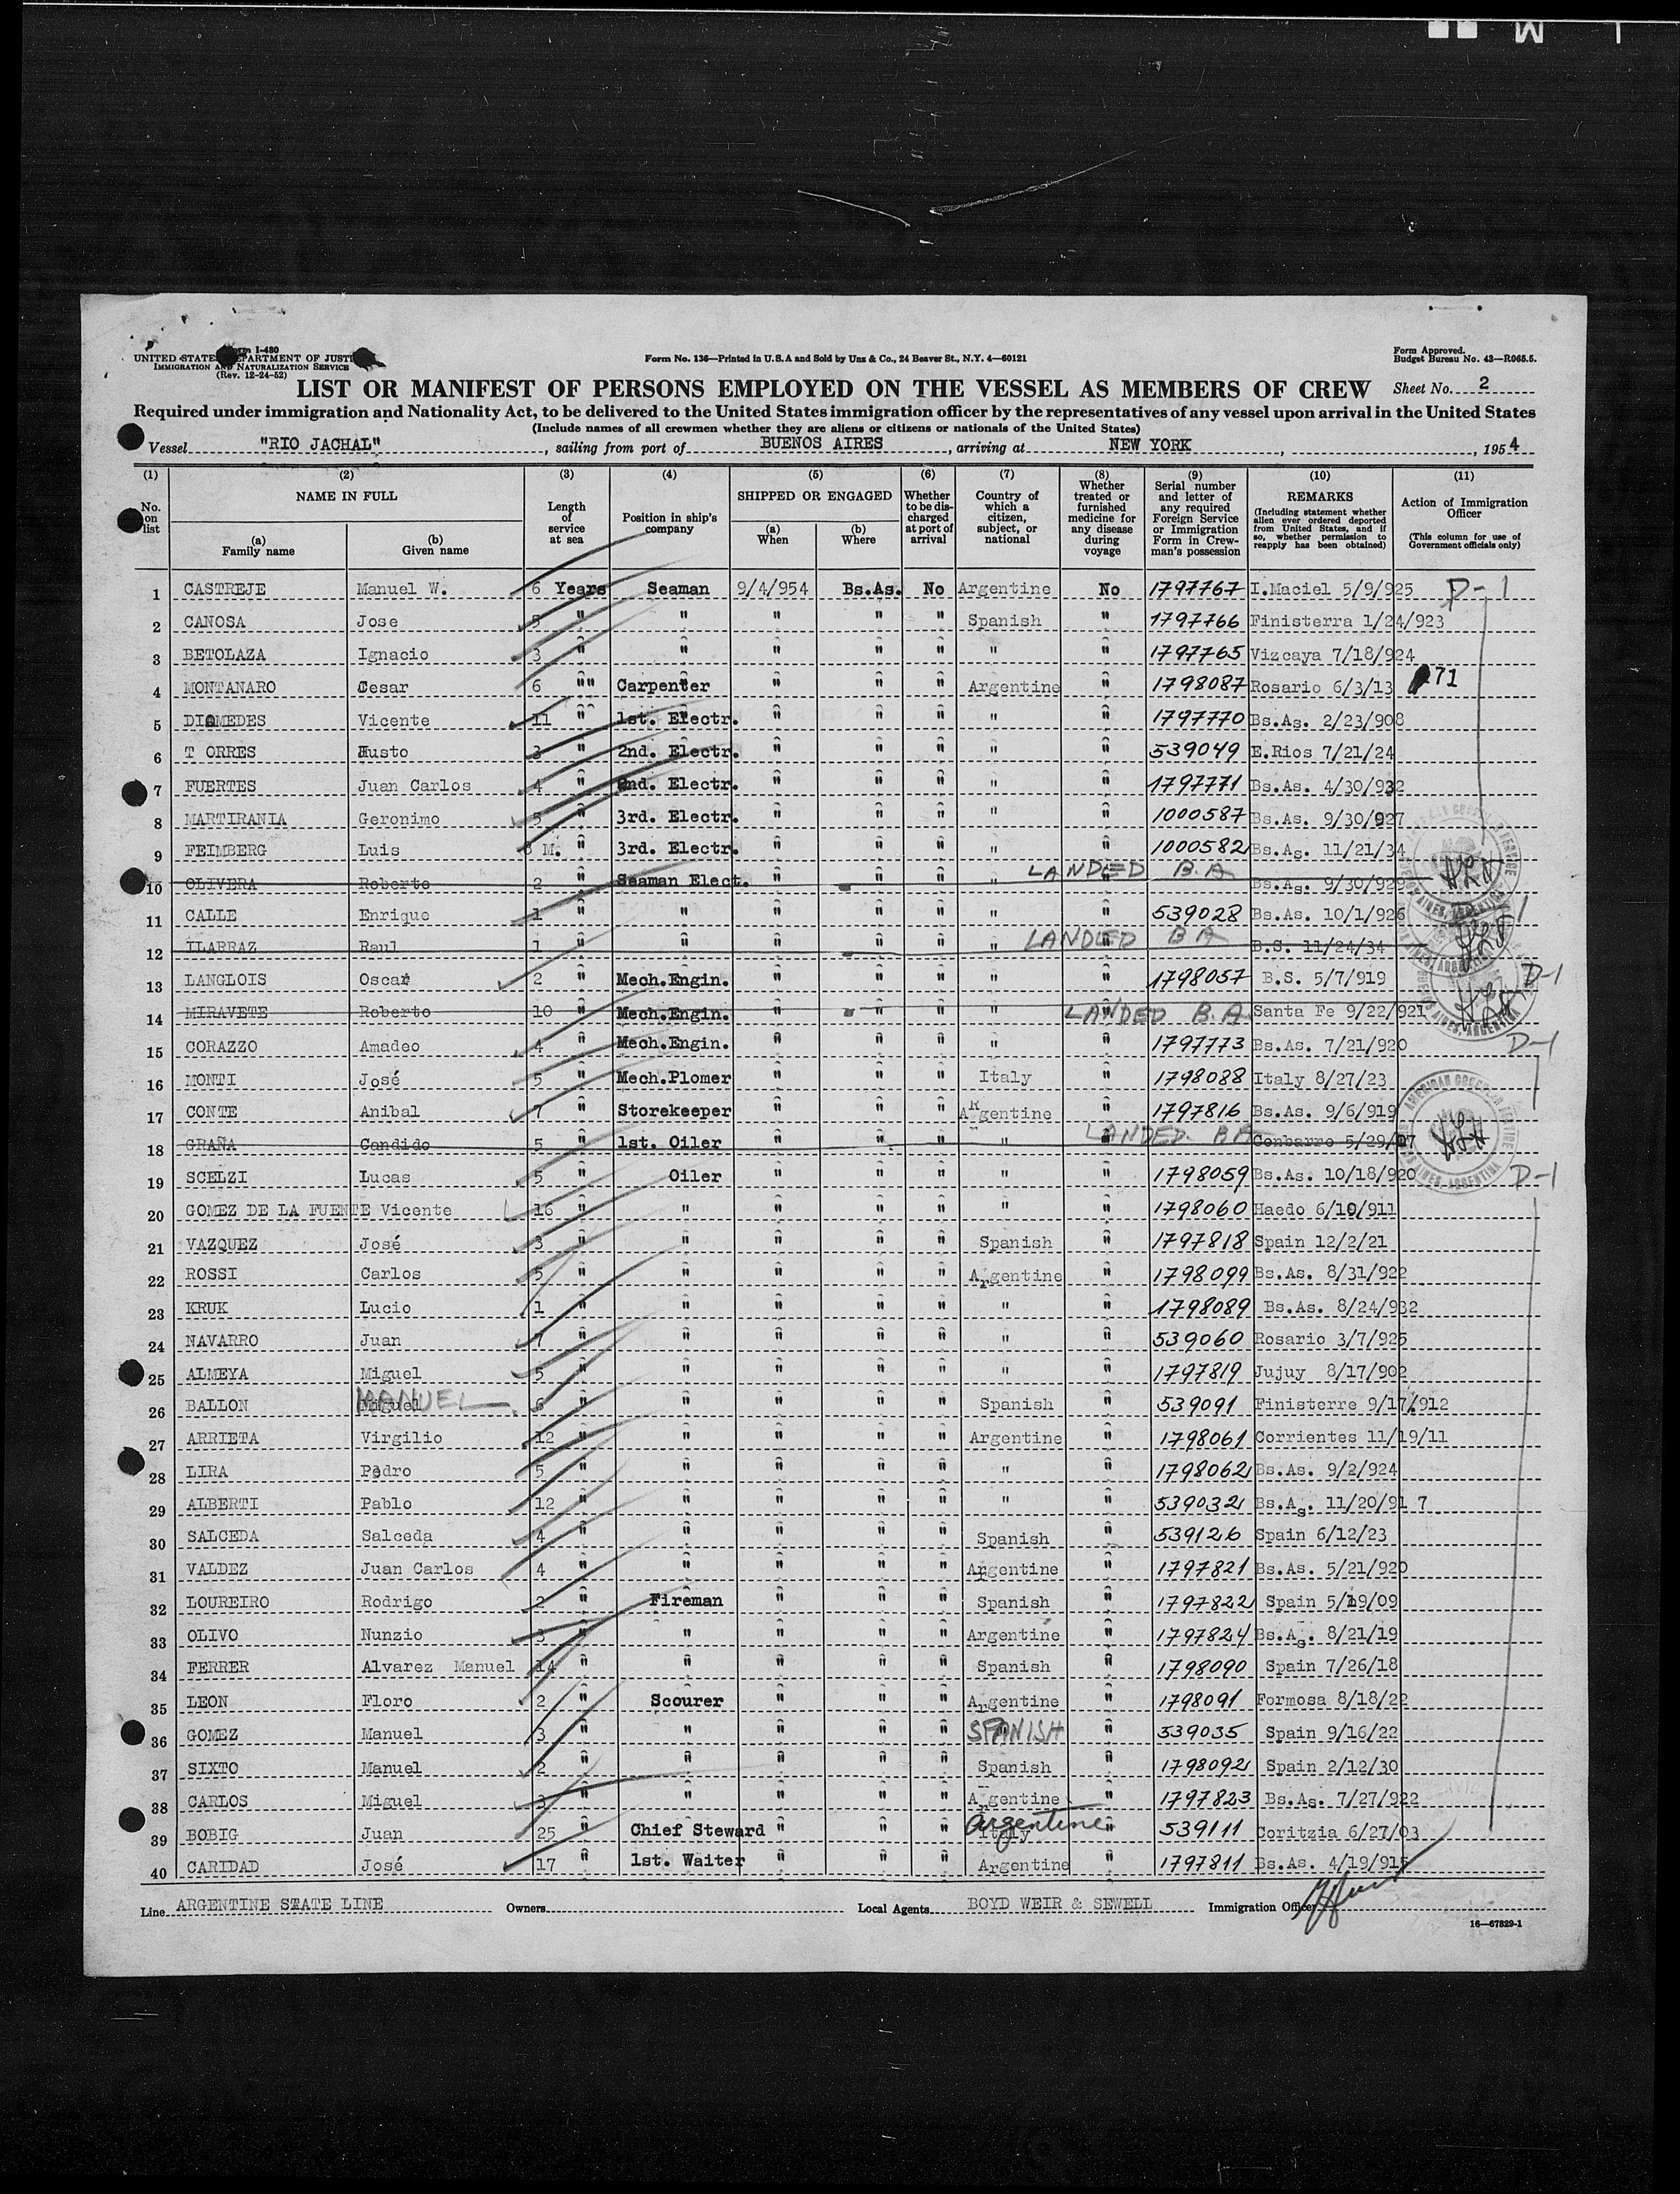 Form I-480
UNITED STATES DEPARTMENT OF JUSTICE
IMMIGRATION AND NATURALIZATION SERVICE
(Rev. 12-24-52)
Form No. 136—Printed in U.S.A and Sold by Unz & Co., 24 Beaver St., N.Y. 4—60121
Form Approved.
Budget Bureau No. 43—R065.5.
LIST OR MANIFEST OF PERSONS EMPLOYED ON THE VESSEL AS MEMBERS OF CREW Sheet No. 2
Required under immigration and Nationality Act, to be delivered to the United States immigration officer by the representatives of any vessel upon arrival in the United States
(Include names of all crewmen whether they are aliens or citizens or nationals of the United States)
Vessel "RIO JACHAL", sailing from port of BUENOS AIRES, arriving at NEW YORK, , 1954
(1) (2) (3) (4) (5) (6) (7) (8) (9) (10) (11)
No. on list
NAME IN FULL
(a) Family name
(b) Given name
Length of service at sea
Position in ship's company
SHIPPED OR ENGAGED
(a) When
(b) Where
Whether to be discharged at port of arrival
Country of which a citizen, subject, or national
Whether treated or furnished medicine for any disease during voyage
Serial number and letter of any required Foreign Service or Immigration Form in Crewman's possession
REMARKS
(Including statement whether alien ever ordered deported from United States, and if so, whether permission to reapply has been obtained)
Action of Immigration Officer
(This column for use of Government officials only)
1 CASTREJE Manuel W. 6 Years Seaman 9/4/954 Bs.As. No Argentine No 1797767 I.Maciel 5/9/925 D-1
2 CANOSA Jose 5 " " " " " Spanish " 1797766 Finisterra 1/24/923
3 BETOLAZA Ignacio 3 " " " " " " " 1797765 Vizcaya 7/18/924
4 MONTANARO Cesar 6 "" Carpenter " " " Argentine " 1798087 Rosario 6/3/13 71
5 DIOMEDES Vicente 11 " 1st. Electr. " " " " " 1797770 Bs.As. 2/23/908
6 T ORRES Husto 3 " 2nd. Electr. " " " " " 539049 E.Rios 7/21/24
7 FUERTES Juan Carlos 4 " 2nd. Electr. " " " " " 1797771 Bs.As. 4/30/932
8 MARTIRANIA Geronimo 5 " 3rd. Electr. " " " " " 1000587 Bs.As. 9/30/927
9 FEIMBERG Luis 8 M. 3rd. Electr. " " " " " 1000582 Bs.As. 11/21/34
10 OLIVERA Roberto 2 " Seaman Elect. " " " " LANDED B.A Bs.As. 9/30/929
11 CALLE Enrique 1 " " " " " " " 539028 Bs.As. 10/1/926
12 ILARRAZ Raul 1 " " " " " " LANDED BA B.S. 11/24/34
13 LANGLOIS Oscar 2 " Mech.Engin. " " " " " 1798057 B.S. 5/7/919 D-1
14 MIRAVETE Roberto 10 " Mech.Engin. " " " " LANDED B.A. Santa Fe 9/22/921
15 CORAZZO Amadeo 4 " Mech.Engin. " " " " " 1797773 Bs.As. 7/21/920 D-1
16 MONTI José 5 " Mech.Plomer " " " Italy " 1798088 Italy 8/27/23
17 CONTE Anibal 7 " Storekeeper " " " Argentine " 1797816 Bs.As. 9/6/919
18 GRAÑA Candido 5 " 1st. Oiler " " " " LANDED BA Conbarro 5/29/07
19 SCELZI Lucas 5 " Oiler " " " " " 1798059 Bs.As. 10/18/920 D-1
20 GOMEZ DE LA FUENTE Vicente 16 " " " " " " " 1798060 Haedo 6/10/911
21 VAZQUEZ José 3 " " " " " Spanish " 1797818 Spain 12/2/21
22 ROSSI Carlos 5 " " " " " Argentine " 1798099 Bs.As. 8/31/922
23 KRUK Lucio 1 " " " " " " " 1798089 Bs.As. 8/24/932
24 NAVARRO Juan 7 " " " " " " " 539060 Rosario 3/7/925
25 ALMEYA Miguel 5 " " " " " " " 1797819 Jujuy 8/17/902
26 BALLON MANUEL 6 " " " " " Spanish " 539091 Finisterre 9/17/912
27 ARRIETA Virgilio 12 " " " " " Argentine " 1798061 Corrientes 11/19/11
28 LIRA Pedro 5 " " " " " " " 1798062 Bs.As. 9/2/924
29 ALBERTI Pablo 12 " " " " " " " 539032 Bs.As. 11/20/91 7
30 SALCEDA Salceda 4 " " " " " Spanish " 539126 Spain 6/12/23
31 VALDEZ Juan Carlos 4 " " " " " Argentine " 1797821 Bs.As. 5/21/920
32 LOUREIRO Rodrigo 2 " Fireman " " " Spanish " 1797822 Spain 5/19/09
33 OLIVO Nunzio 3 " " " " " Argentine " 1797824 Bs.As. 8/21/19
34 FERRER Alvarez Manuel 14 " " " " " Spanish " 1798090 Spain 7/26/18
35 LEON Floro 2 " Scourer " " " Argentine " 1798091 Formosa 8/18/22
36 GOMEZ Manuel 3 " " " " " SPANISH " 539035 Spain 9/16/22
37 SIXTO Manuel 2 " " " " " Spanish " 1798092 Spain 2/12/30
38 CARLOS Miguel 3 " " " " " Argentine " 1797823 Bs.As. 7/27/922
39 BOBIG Juan 25 " Chief Steward " " " Italy Argentine " 539111 Coritzia 6/27/03
40 CARIDAD José 17 " 1st. Waiter " " " Argentine " 1797811 Bs.As. 4/19/915
Line ARGENTINE STATE LINE Owners Local Agents BOYD WEIR & SEWELL Immigration Officer
16—67829-1